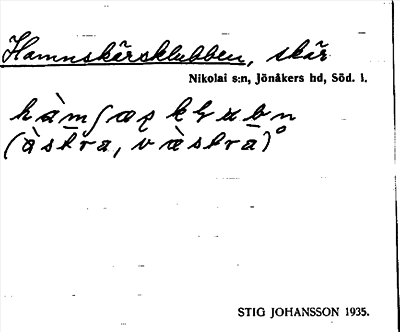 Hamnskärsklubben, skär
Nikolai s:n, Jönåkers hd, Söd. l.
hàmʃæʀ klubn
(àstra, væ̀stra)°
STIG JOHANSSON 1935.